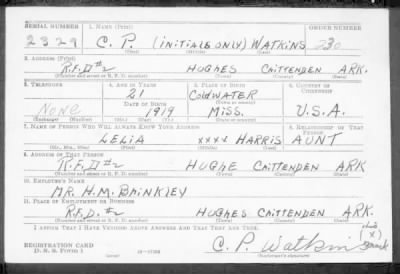 SERIAL NUMBER 1. NAME (Print) ORDER NUMBER
2329 C. P. (INITIALS ONLY) WATKINS 230
(First) (Middle) (Last)
2. ADDRESS (Print)
R.F.D #2 HUGHES CRITTENDEN ARK.
(Number and street or R. F. D. number) (Town) (County) (State)
3. TELEPHONE 4. AGE IN YEARS 5. PLACE OF BIRTH 6. COUNTRY OF CITIZENSHIP
21 COLDWATER
None DATE OF BIRTH (Town or county)
1919 MISS. U.S.A.
(Exchange) (Number) (Mo.) (Day) (Yr.) (State or country)
7. NAME OF PERSON WHO WILL ALWAYS KNOW YOUR ADDRESS 8. RELATIONSHIP OF THAT PERSON
LELIA xxxx HARRIS AUNT
(Mr., Mrs., Miss) (First) (Middle) (Last)
9. ADDRESS OF THAT PERSON
R.F.D #2 HUGHE CRITTENDEN ARK
(Number and street or R. F. D. number) (Town) (County) (State)
10. EMPLOYER'S NAME
MR. H.M. BRINKLEY
11. PLACE OF EMPLOYMENT OR BUSINESS
R.F.D. #2 HUGHES CRITTENDEN ARK.
(Number and street or R. F. D. number) (Town) (County) (State)
I AFFIRM THAT I HAVE VERIFIED ABOVE ANSWERS AND THAT THEY ARE TRUE.
REGISTRATION CARD C. P. Watkins his (X) mark
D. S. S. FORM 1 (Registrant's signature)